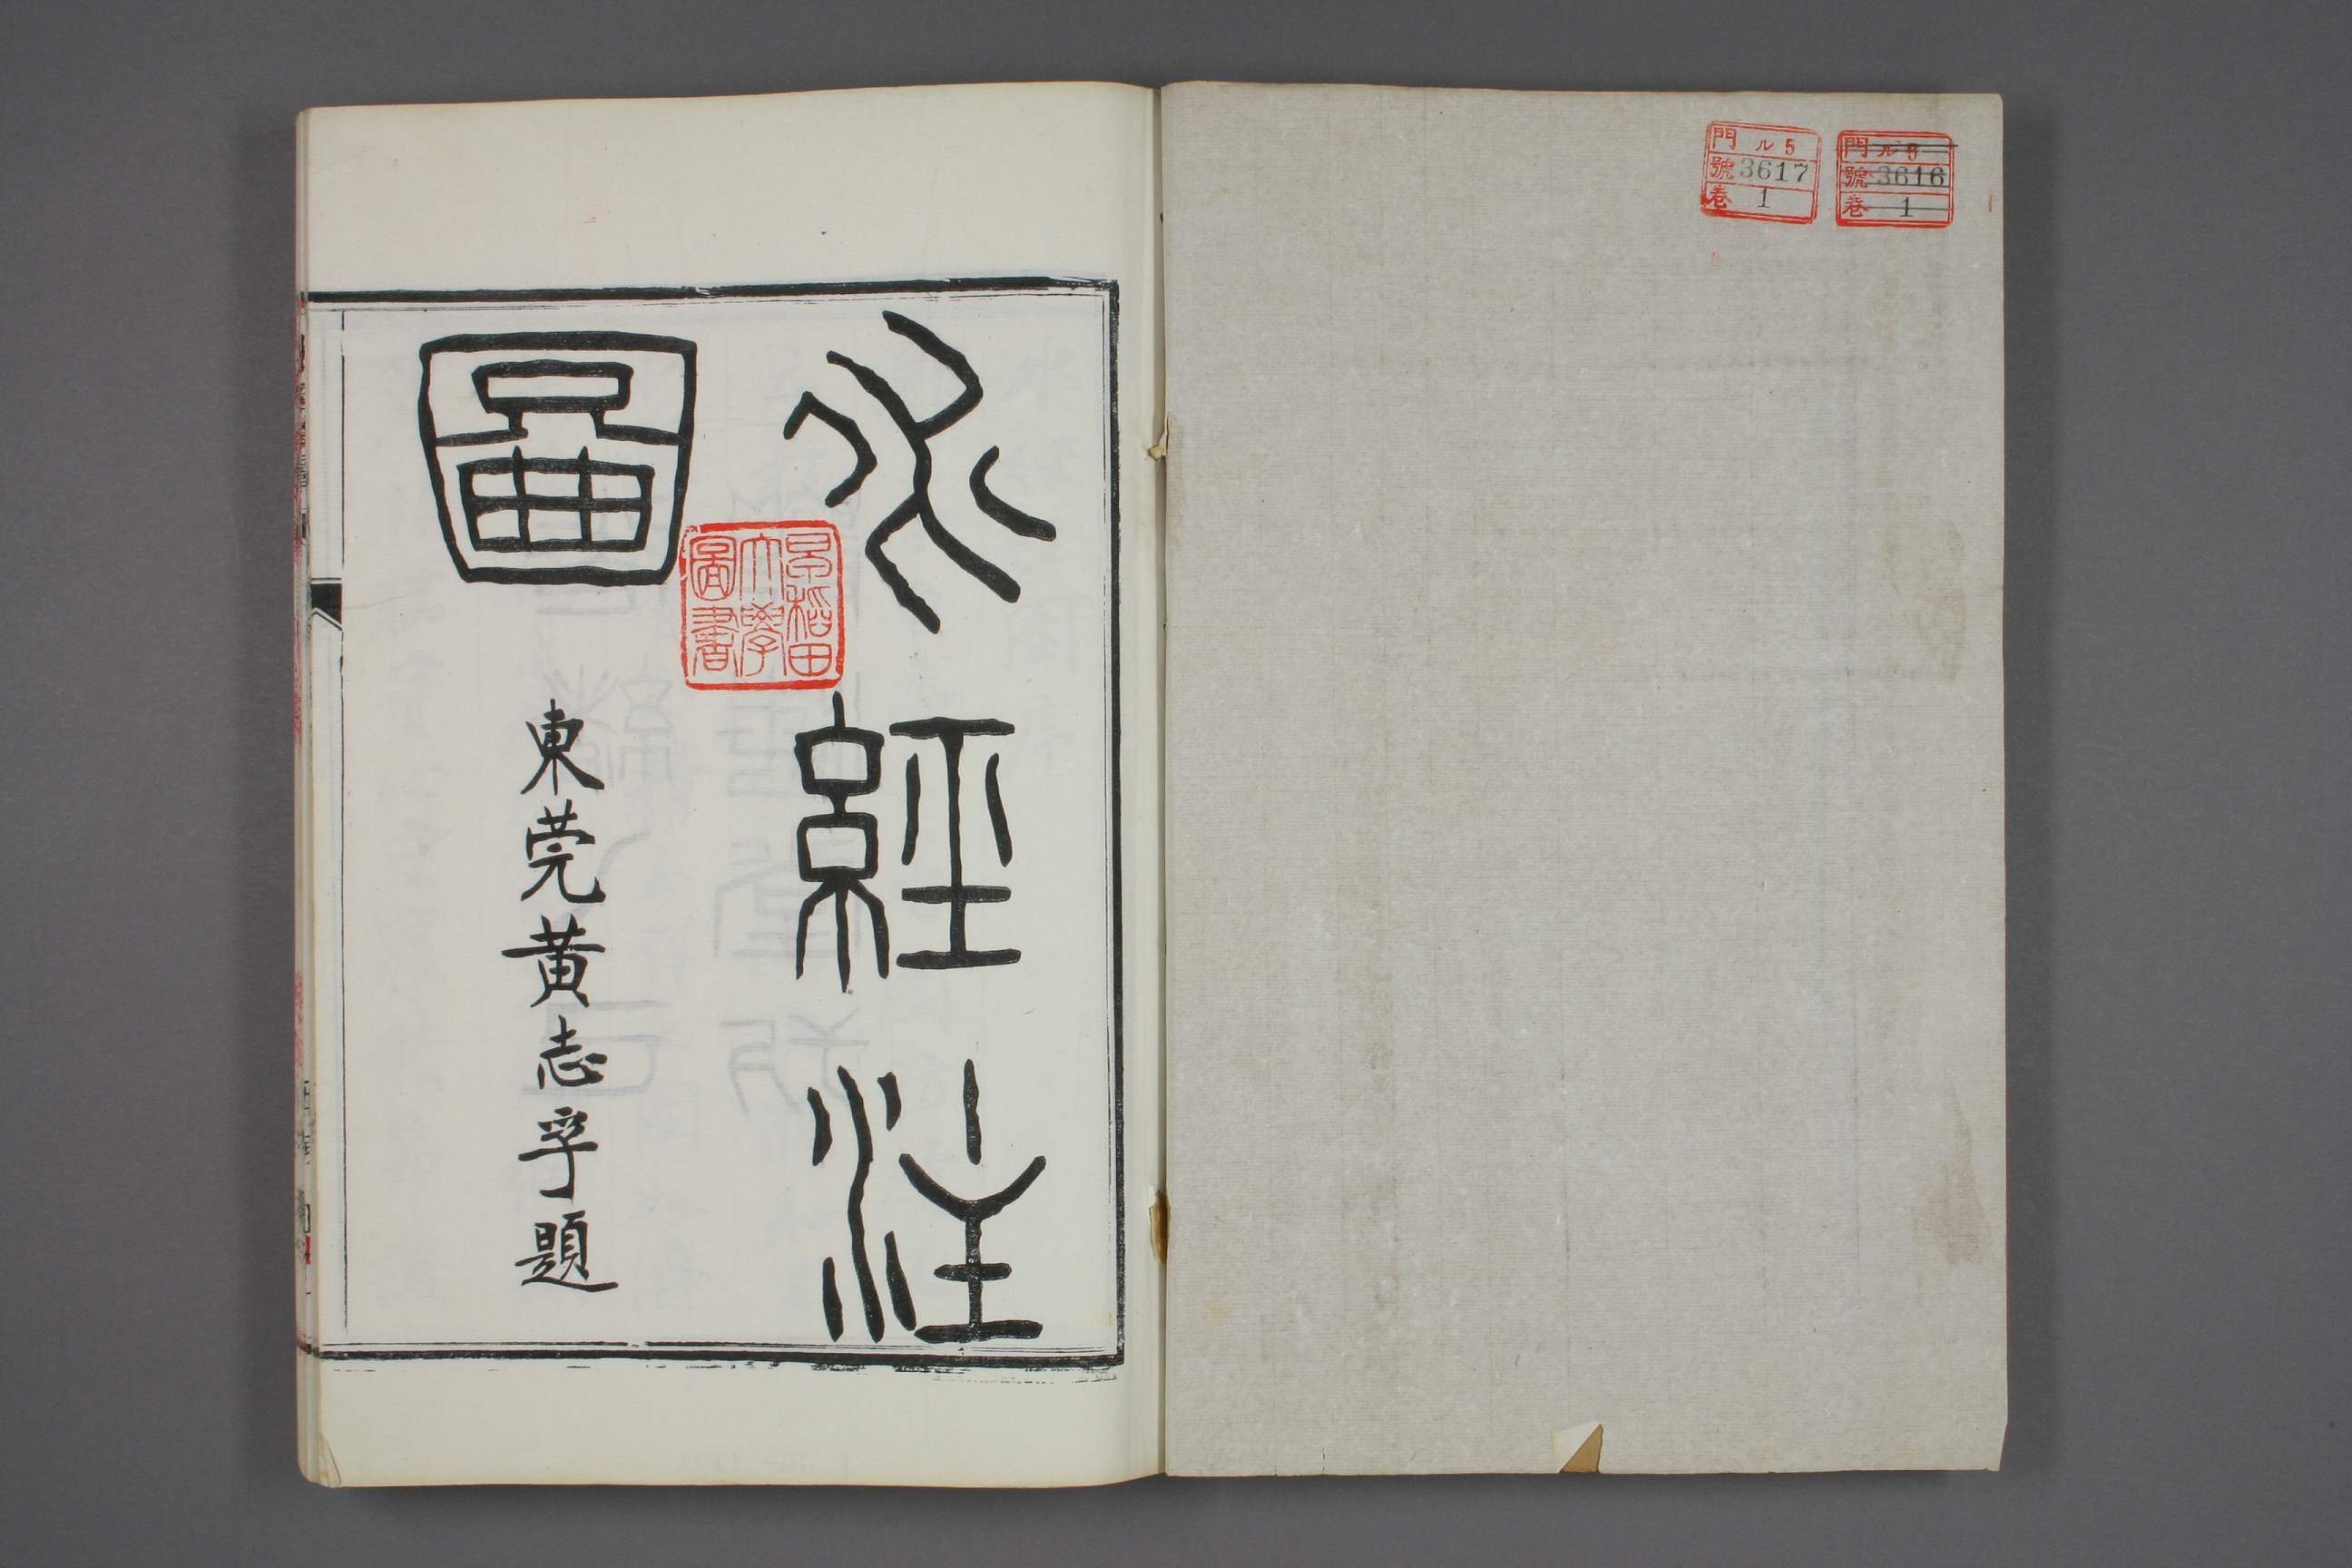 門 ル5
號 3616
卷 1
門 ル5
號 3617
卷 1
水經注
圖
早稻田
大學
圖書
東莞黄志孚題